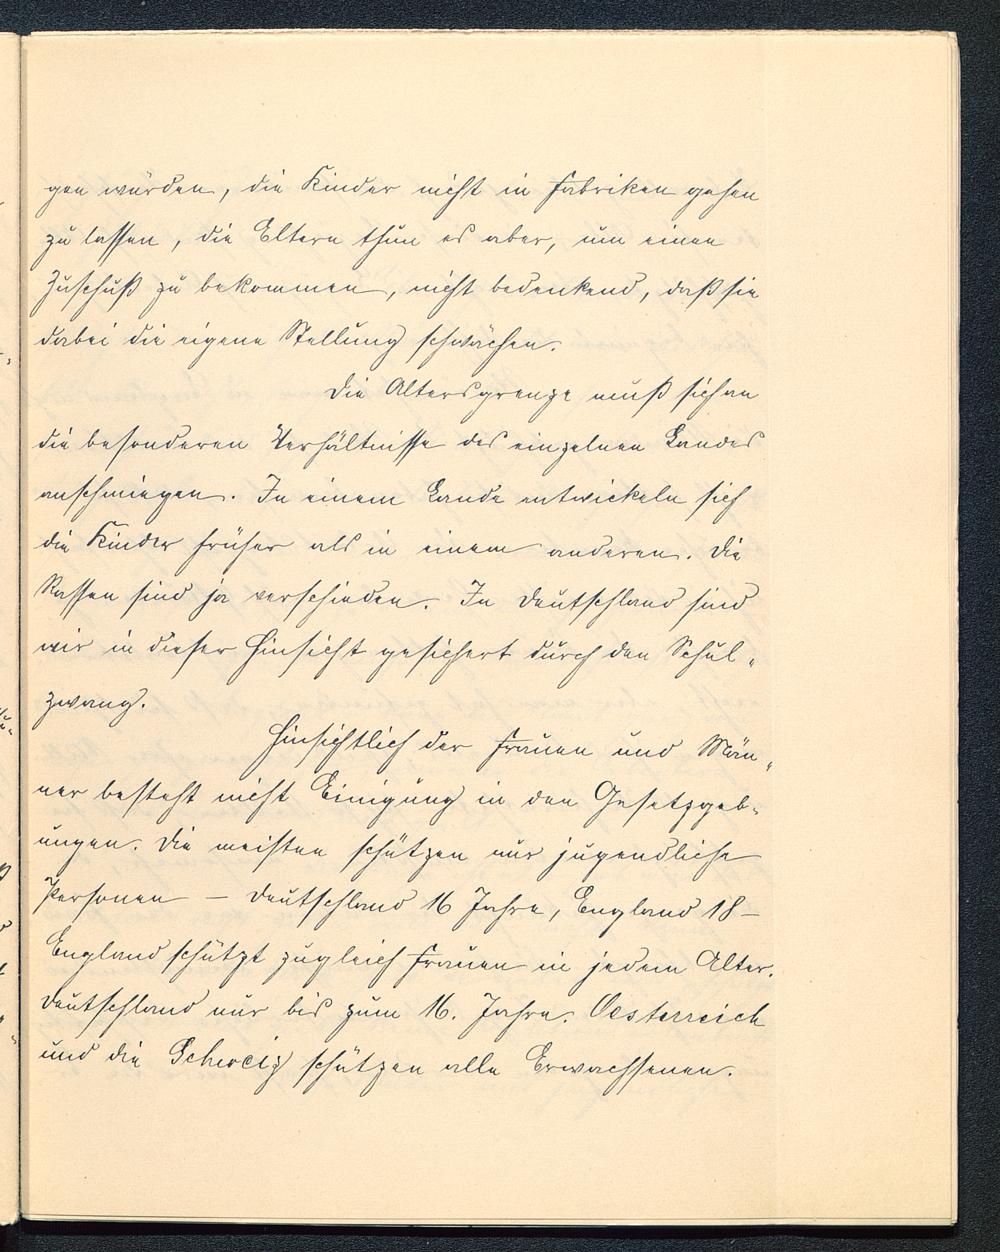 gen würden, die Kinder nicht in Fabriken gehen
zu lassen, die Eltern thun es aber, um einen
Zuschuß zu bekommen, nicht bedenkend, daß sie
dabei die eigene Stellung schwächen.
Die Altersgrenze muß sich an
die besonderen Verhältnisse des einzelnen Landes
anschmiegen. In einem Lande entwickeln sich
die Kinder früher als in einem anderen. Die
Rassen sind ja verschieden. In Deutschland sind
wir in dieser Hinsicht gesichert durch den Schul-
zwang.
Hinsichtlich der Frauen und Män-
ner besteht nicht Einigung in den Gesetzgeb-
ungen. Die meisten schützen nur jugendliche
Personen – Deutschland 16 Jahre, England 18 –
England schützt zugleich Frauen in jedem Alter.
Deutschland nur bis zum 16. Jahre. Oesterreich
und die Schweiz schützen alle Erwachsenen.